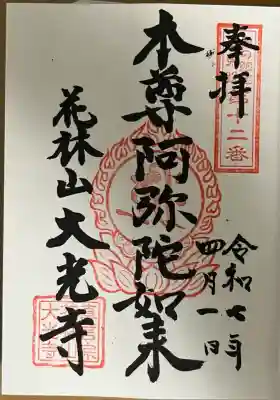 奉拝
本尊阿弥陀如来
花林山大光寺
令和七年
四月一日
十二番